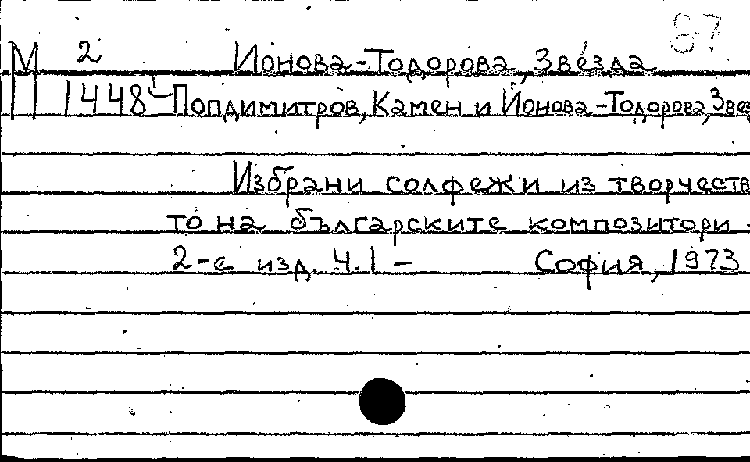 87
М 2 Ионова-Тодорова, Звезда
П 1448 Попдимитров, Камен и Йонова-Тодорова, Звез
Избрани солфежи из творчеств
то на българските композитори -
2-е изд. Ч. I - София, 1973